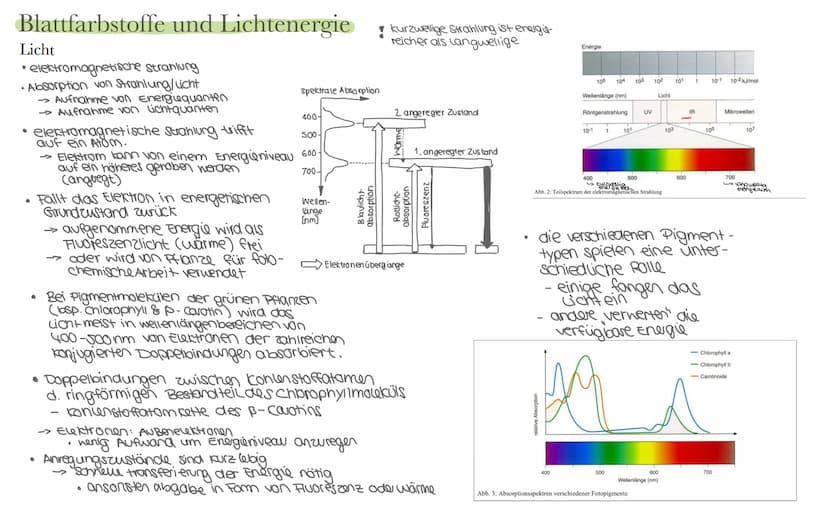 Blattfarbstoffe und Lichtenergie
Licht
• elektromagnetische Strahlung
• Absorption von Strahlung/Licht
→ Aufnahme von Energiequanten
→ Aufnahme von Lichtquanten
• elektromagnetische Strahlung trifft
auf ein Atom.
→ Elektron kann von einem Energieniveau
auf ein höheres gehoben werden
(angregt)
• Fällt das Elektron in energetischen
Grundzustand zurück
→ aufgenommene Energie wird als
Fluoreszenzlicht (Wärme) frei
→ oder wird von Pflanze für foto-
chemische Arbeit verwendet
• Bei Pigmentmolekülen der grünen Pflanzen
(bsp. Chlorophyll & β-Carotin) wird das
Licht meist in wellenlängenbereichen von
400-500nm von Elektronen der zahlreichen
konjugierten Doppelbindungen absorbiert.
• Doppelbindungen zwischen Kohlenstoffatomen
d. ringförmigen Bestandteil des Chlorophyllmoleküls
- Kohlenstoffatom kette des β-Carotins
→ Elektronen: Außenelektronen
• wenig Aufwand um Energieniveau anzuregen
• Anregungszustände sind kurzlebig
→ schnelle transferierung der Energie nötig
• ansonsten abgabe in Form von Fluoreszenz oder wärme
! kurzwellige Strahlung ist energie-
reicher als Langwellige
Spektrale Absorption
400
500
600
700
Wellen-
länge
[nm]
2. angeregter Zustand
1. angeregter Zustand
Wärme
Blaulicht-
absorption
Rotlicht-
absorption
Fluoreszenz
Elektronenübergänge
Energie
10⁵ 10⁴ 10³ 10² 10¹ 1 10⁻¹ 10⁻² kJ/mol
Wellenlänge (nm) Licht
Röntgenstrahlung UV IR Mikrowellen
10⁻¹ 1 10¹ 10³ 10⁵ 10⁷
400 500 600 700
Abb. 2: Teilspektrum der elektromagnetischen Strahlung
• die verschiedenen Pigment-
typen spielen eine unter-
schiedliche Rolle
- einige fangen das
Licht ein
- andere „verwerten" die
verfügbare Energie
relative Absorption
Chlorophyll a
Chlorophyll b
Carotinoide
400 500 600 700
Wellenlänge (nm)
Abb. 3. Absorptionsspektren verschiedener Fotopigmente